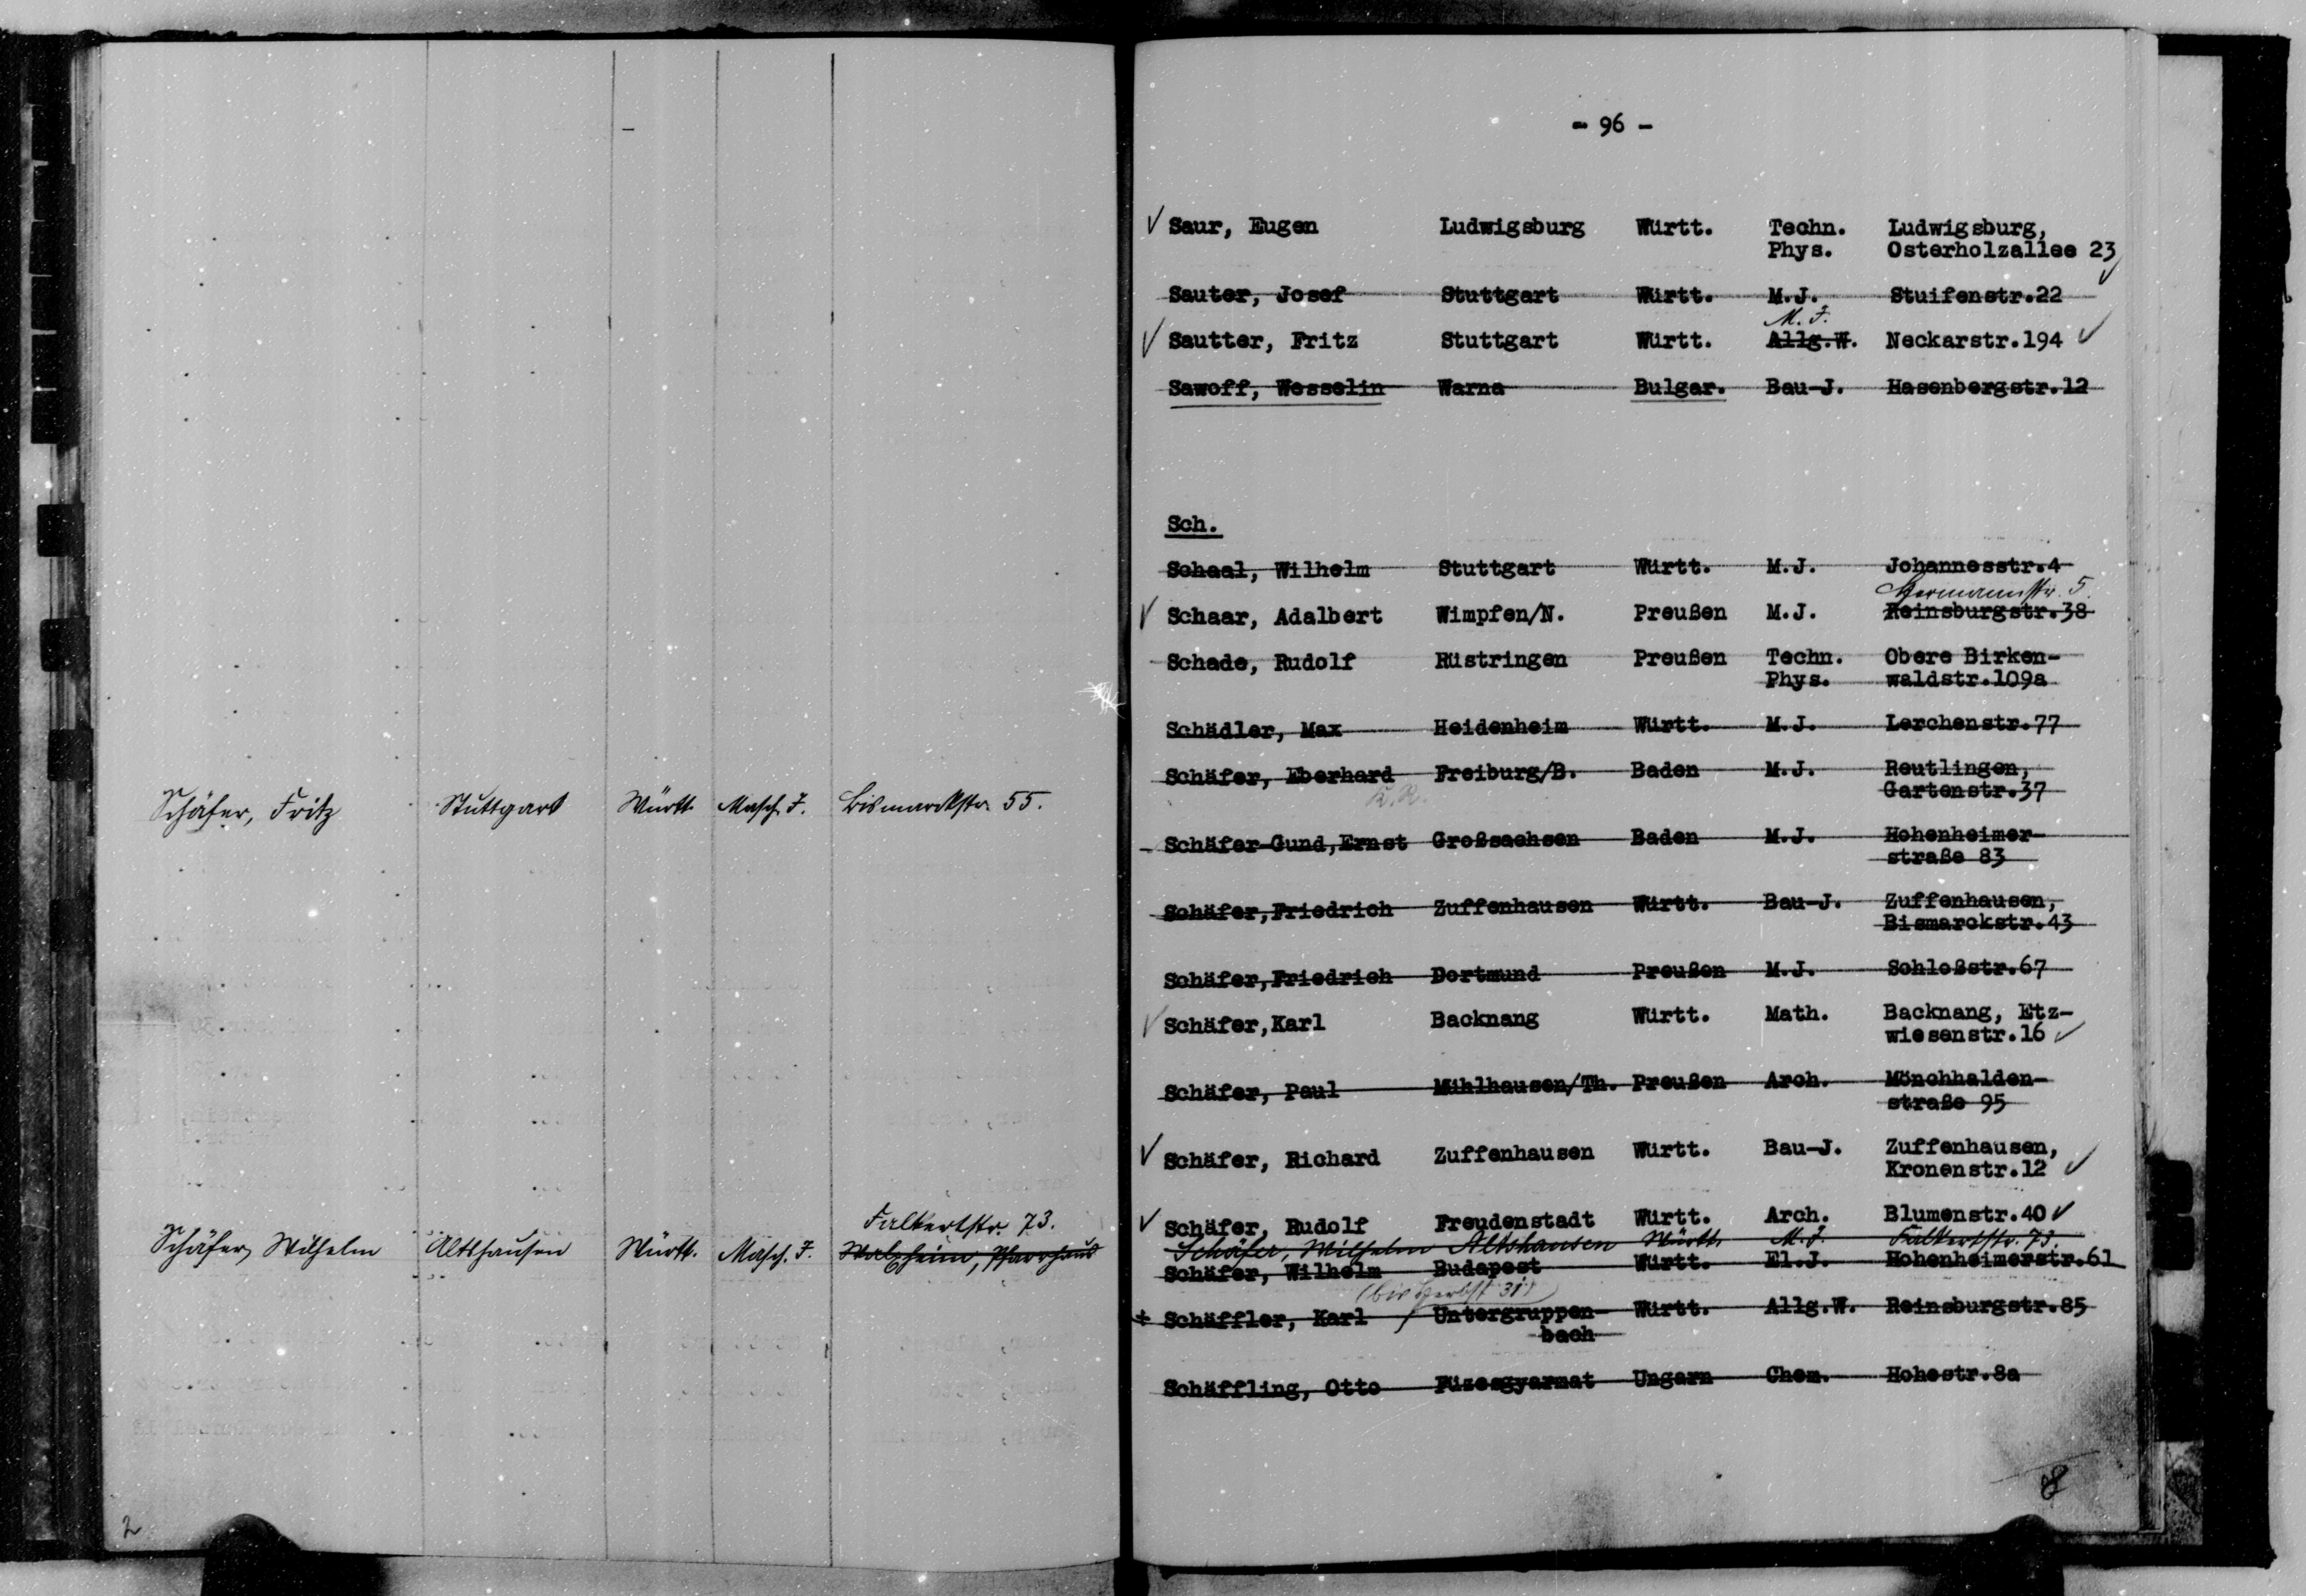 Schäfer, Fritz Stuttgart Württ. Masch. I. Bismarckstr. 55.
Falkertstr. 73.
Schäfer, Wilhelm Altshausen Württ. Masch. I. Pfarrhaus
2
- 96 -
Saur, Eugen Ludwigsburg Württ. Techn. Ludwigsburg,
Phys. Osterholzallee 23
Sauter, Josef Stuttgart Württ. M.J. Stuifenstr.22
M. I.
Sautter, Fritz Stuttgart Württ. Allg.W. Neckarstr.194
Sawoff, Wesselin Warna Bulgar. Bau-J. Hasenbergstr.12
Sch.
Schaal, Wilhelm Stuttgart Württ. M.J. Johannesstr.4
Hermannstr. 5.
Schaar, Adalbert Wimpfen/N. Preußen M.J. Reinsburgstr.38
Schade, Rudolf Rüstringen Preußen Techn. Obere Birken-
Phys. waldstr.109a
Schädler, Max Heidenheim Württ. M.J. Lerchenstr.77
Schäfer, Eberhard Freiburg/B. Baden M.J. Reutlingen,
Gartenstr.37
Schäfer-Gund,Ernst Großsachsen Baden M.J. Hohenheimer-
straße 83
Schäfer,Friedrich Zuffenhausen Württ. Bau-J. Zuffenhausen,
Bismarckstr.43
Schäfer,Friedrich Dortmund Preußen M.J. Schloßstr.67
Schäfer,Karl Backnang Württ. Math. Backnang, Etz-
wiesenstr.16
Schäfer, Paul Mühlhausen/Th. Preußen Arch. Mönchhalden-
straße 95
Schäfer, Richard Zuffenhausen Württ. Bau-J. Zuffenhausen,
Kronenstr.12
Schäfer, Rudolf Freudenstadt Württ. Arch. Blumenstr.40
Schäfer, Wilhelm Altshausen Württ. M. I. Falkertstr. 73.
Schäfer, Wilhelm Budapest Württ. El.J. Hohenheimerstr.61
(bis Herbst 31)
+ Schäffler, Karl Untergruppen- Württ. Allg.W. Reinsburgstr.85
bach
Schäffling, Otto Füzesgyarmat Ungarn Chem. Hohestr.8a